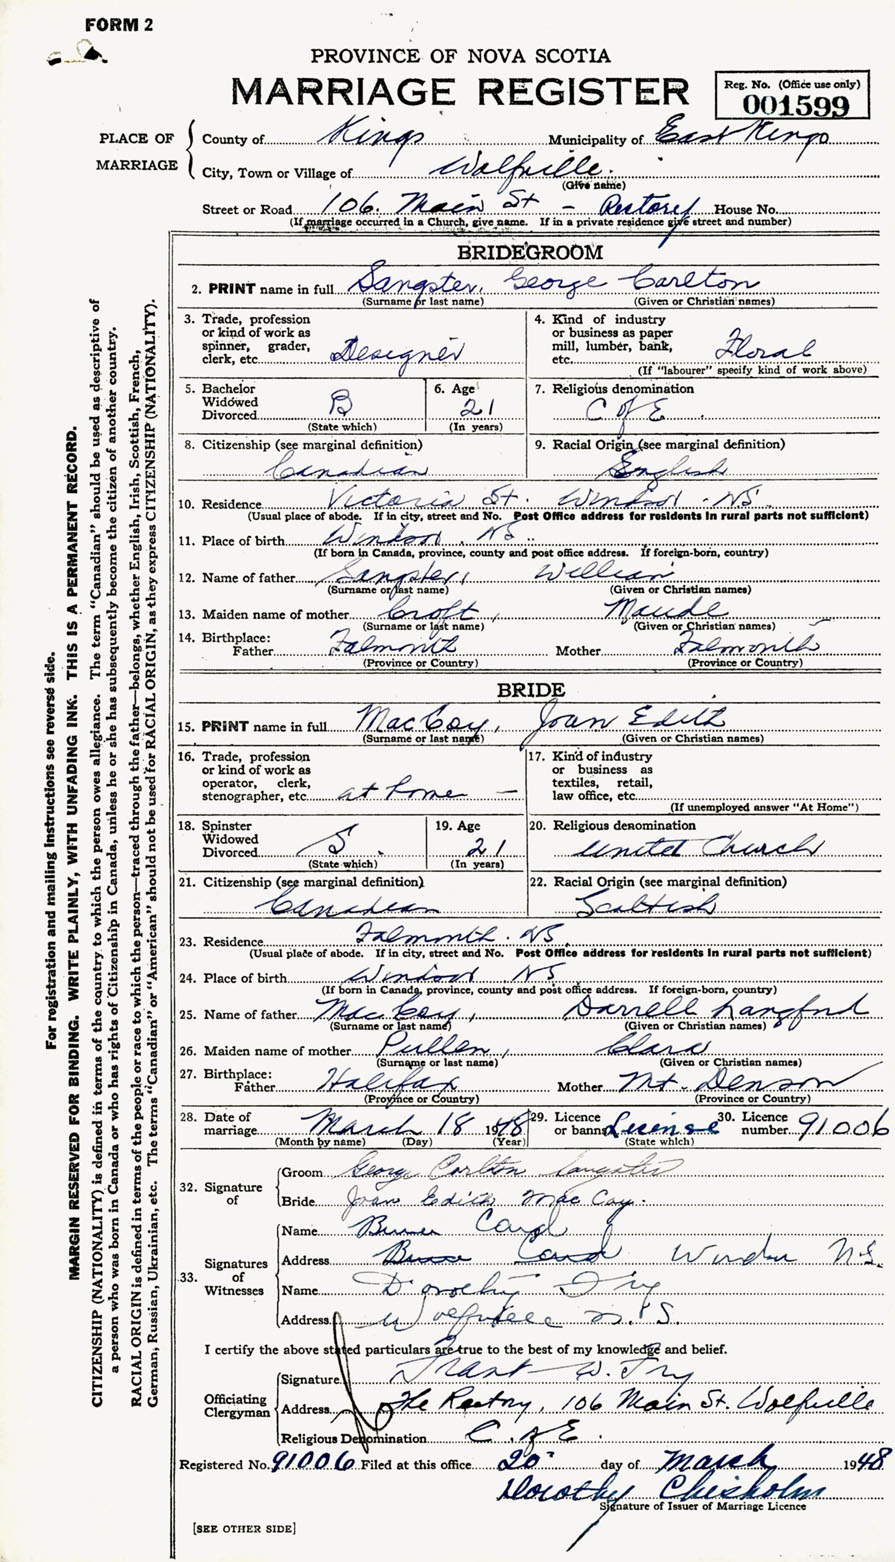 FORM 2
PROVINCE OF NOVA SCOTIA
MARRIAGE REGISTER
Reg. No. (Office use only)
001599
PLACE OF MARRIAGE
County of Kings Municipality of East Kings
City, Town or Village of Wolfville.
(Give name)
Street or Road 106. Main St - Rectory House No.
(If marriage occurred in a Church, give name. If in a private residence give street and number)
BRIDEGROOM
2. PRINT name in full Sangster, George Carlton
(Surname or last name) (Given or Christian names)
3. Trade, profession or kind of work as spinner, grader, clerk, etc. Designer
4. Kind of industry or business as paper mill, lumber, bank, etc. Floral
(If "labourer" specify kind of work above)
5. Bachelor Widowed Divorced B
(State which)
6. Age 21
(In years)
7. Religious denomination
C of E.
8. Citizenship (see marginal definition)
Canadian
9. Racial Origin (see marginal definition)
English
10. Residence Victoria St. Windsor - NS
(Usual place of abode. If in city, street and No. Post Office address for residents in rural parts not sufficient)
11. Place of birth Windsor. NS
(If born in Canada, province, county and post office address. If foreign-born, country)
12. Name of father Sangster, William
(Surname or last name) (Given or Christian names)
13. Maiden name of mother Croft, Maude
(Surname or last name) (Given or Christian names)
14. Birthplace:
Father Falmouth Mother Falmouth
(Province or Country) (Province or Country)
BRIDE
15. PRINT name in full MacCoy, Joan Edith
(Surname or last name) (Given or Christian names)
16. Trade, profession or kind of work as operator, clerk, stenographer, etc. at home -
17. Kind of industry or business as textiles, retail, law office, etc.
(If unemployed answer "At Home")
18. Spinster Widowed Divorced S.
(State which)
19. Age 21
(In years)
20. Religious denomination
United Church
21. Citizenship (see marginal definition)
Canadian
22. Racial Origin (see marginal definition)
Scottish
23. Residence Falmouth. NS
(Usual place of abode. If in city, street and No. Post Office address for residents in rural parts not sufficient)
24. Place of birth Windsor NS
(If born in Canada, province, county and post office address. If foreign-born, country)
25. Name of father MacCoy, Darrell Langford
(Surname or last name) (Given or Christian names)
26. Maiden name of mother Pullen, Clara
(Surname or last name) (Given or Christian names)
27. Birthplace:
Father Halifax Mother Mt. Denson
(Province or Country) (Province or Country)
28. Date of marriage March 18 1948
(Month by name) (Day) (Year)
29. Licence or banns License
(State which)
30. Licence number 91006
32. Signature of
Groom George Carlton Sangster
Bride Joan Edith MacCoy.
33. Signatures of Witnesses
Name
Address Windsor N.S.
Name Dorothy Fry
Address Wolfville N.S.
I certify the above stated particulars are true to the best of my knowledge and belief.
Officiating Clergyman
Signature W. Fry
Address The Rectory, 106 Main St. Wolfville
Religious Denomination C. of E.
Registered No. 91006 Filed at this office 20 day of March 1948
Dorothy Chisholm
Signature of Issuer of Marriage Licence
[SEE OTHER SIDE]
For registration and mailing instructions see reverse side.
MARGIN RESERVED FOR BINDING. WRITE PLAINLY, WITH UNFADING INK. THIS IS A PERMANENT RECORD.
CITIZENSHIP (NATIONALITY) is defined in terms of the country to which the person owes allegiance. The term "Canadian" should be used as descriptive of
a person who was born in Canada or who has rights of Citizenship in Canada, unless he or she has subsequently become the citizen of another country.
RACIAL ORIGIN is defined in terms of the people or race to which the person—traced through the father—belongs, whether English, Irish, Scottish, French,
German, Russian, Ukrainian, etc. The terms "Canadian" or "American" should not be used for RACIAL ORIGIN, as they express CITIZENSHIP (NATIONALITY).